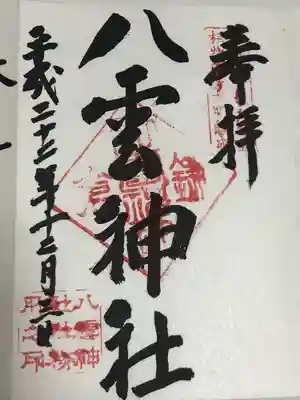 奉拝
八雲神社
平成二十三年十二月三日
八雲神
社社務
所之印